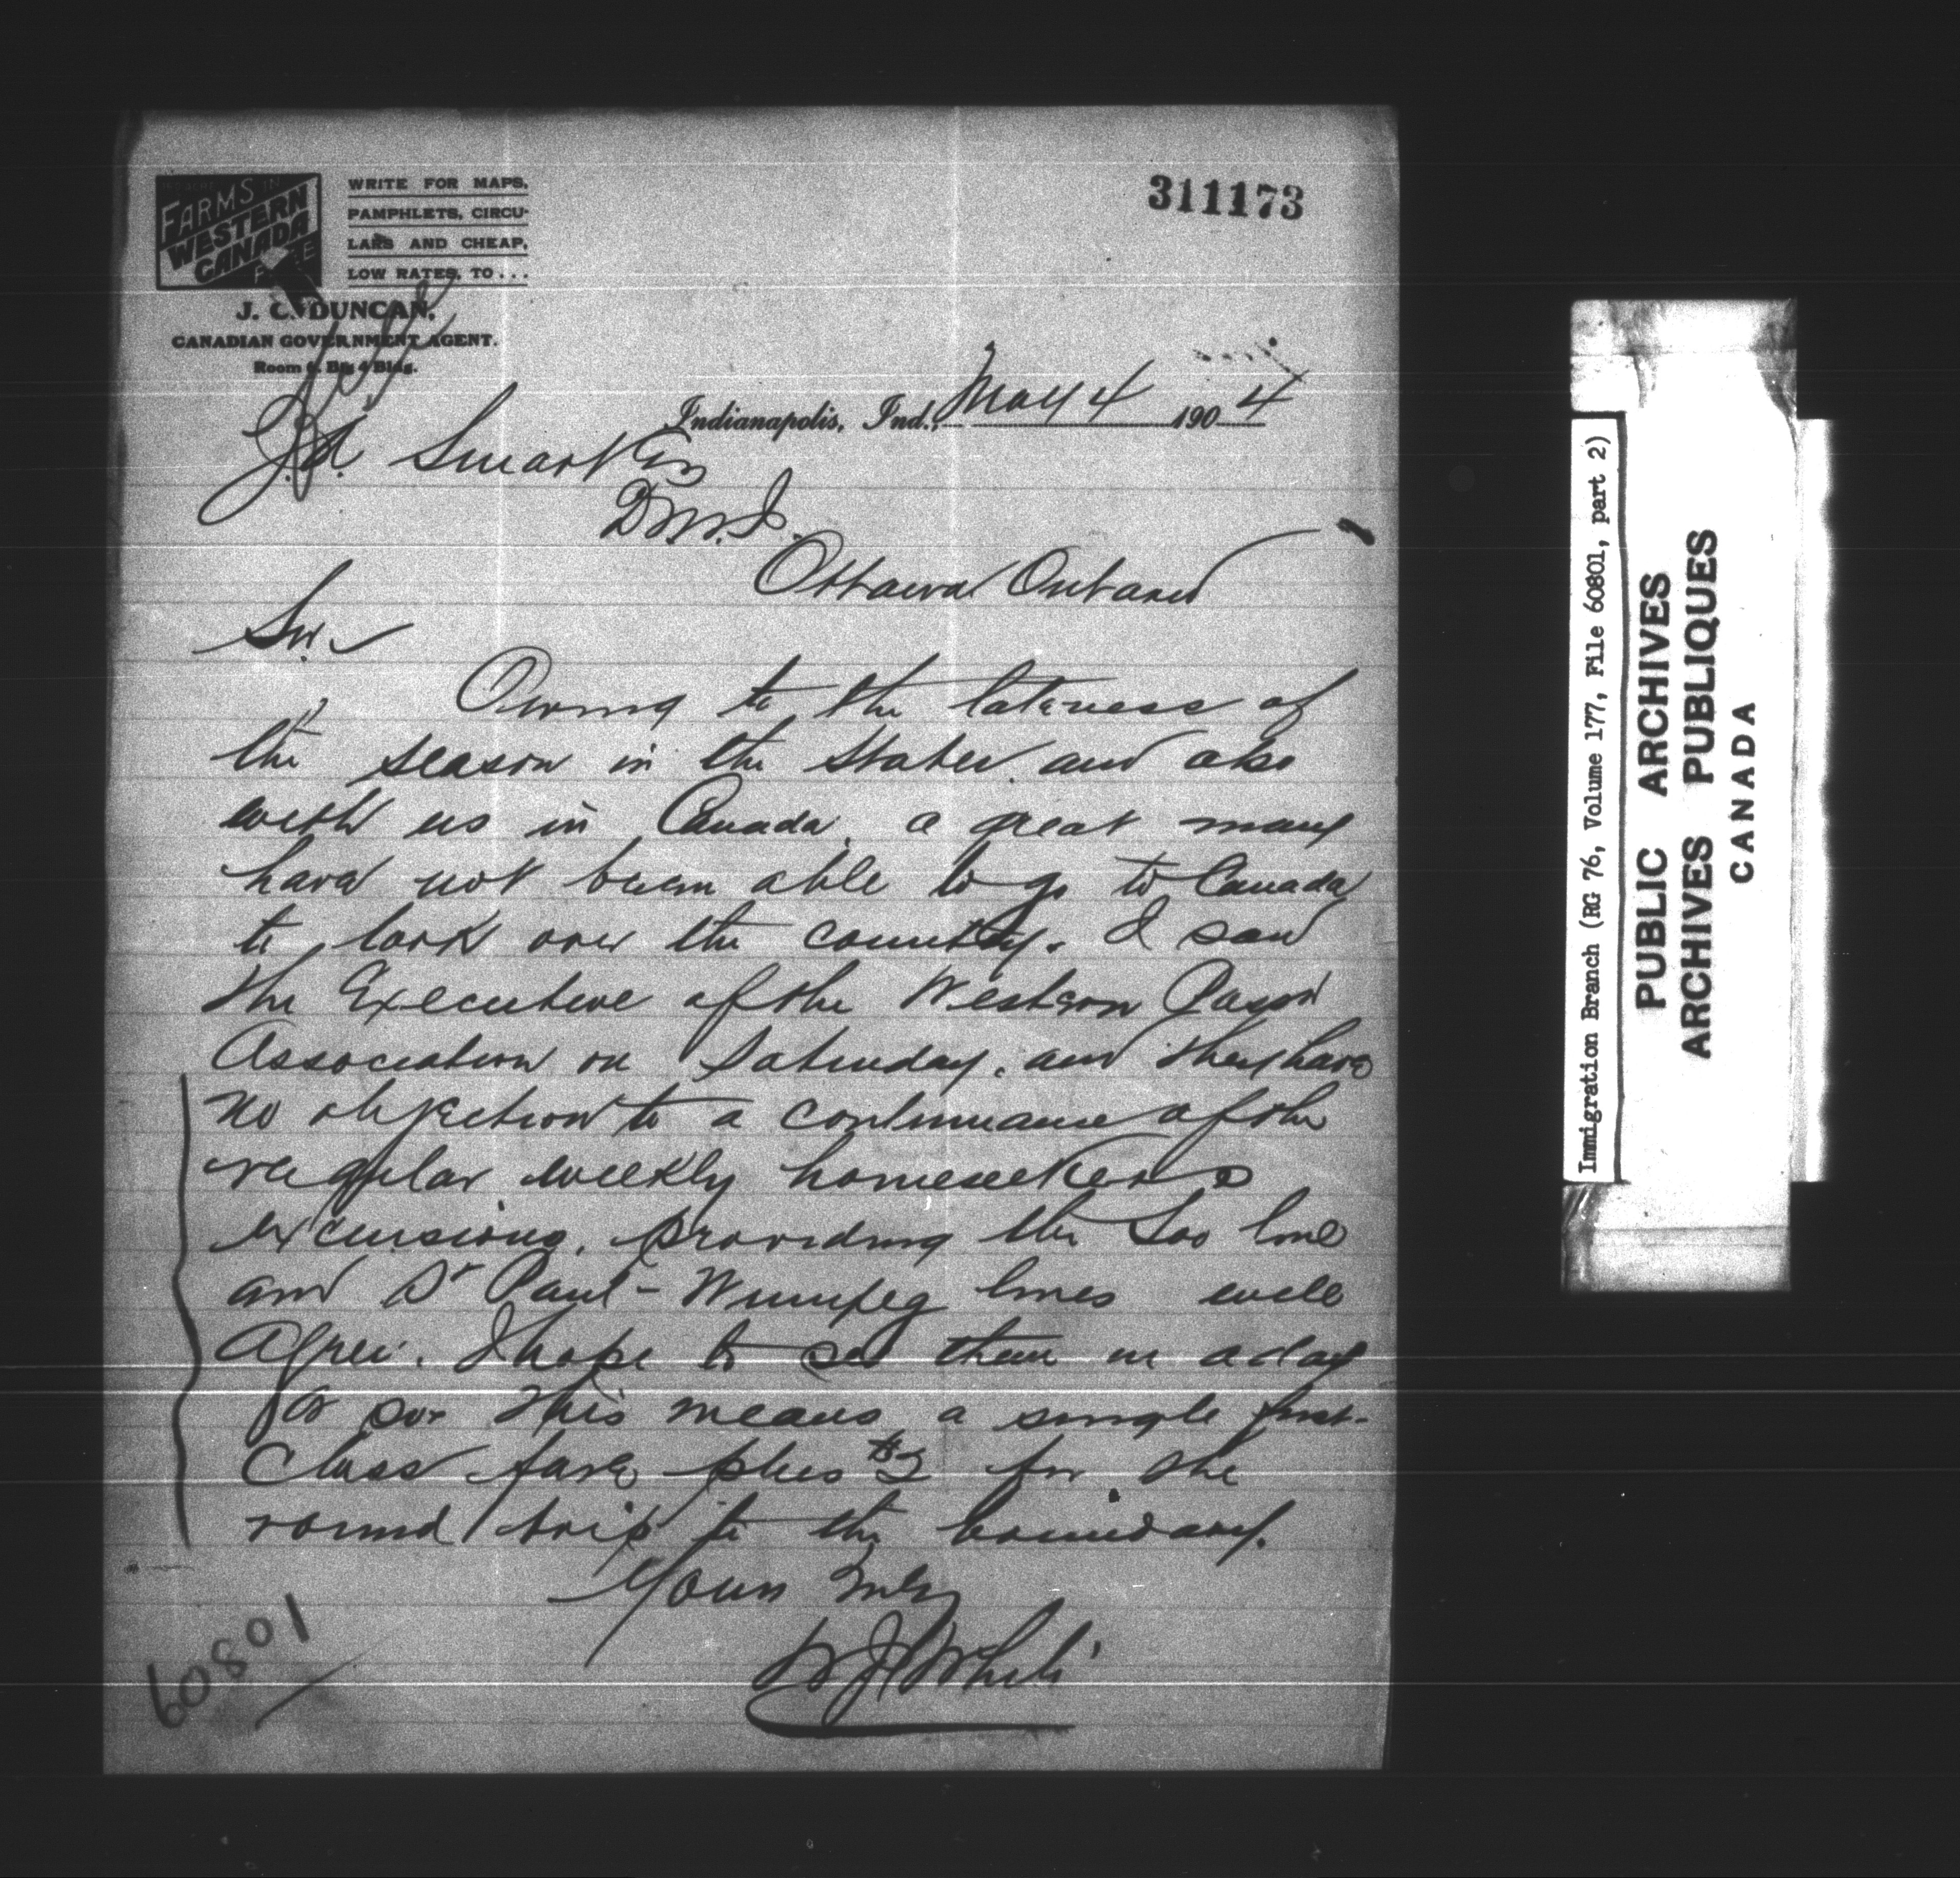 311173
FARMS IN
WESTERN
CANADA
FREE
WRITE FOR MAPS,
PAMPHLETS, CIRCU-
LARS AND CHEAP,
LOW RATES, TO...
J. C. DUNCAN,
CANADIAN GOVERNMENT AGENT.
Room 6, Big 4 Bldg.
Indianapolis, Ind., May 4 1904
J.A. Smart Esq
D.M.I.
Ottawa Ontario
Sir.
Owing to the lateness of
the season in the States and also
with us in Canada, a great many
have not been able to go to Canada
to look over the country. I saw
the Executive of the Western Passr
Association on Saturday, and they have
no objection to a continuance of the
regular weekly homeseekers
excursions, providing the Soo line
and St Paul - Winnipeg lines will
Agree. I hope to see them in a day
or so. This means a single first-
Class fare plus $2 for the
round trip to the boundary.
Yours truly
W J White
60801
Immigration Branch (RG 76, Volume 177, File 60801, part 2)
PUBLIC ARCHIVES
ARCHIVES PUBLIQUES
CANADA